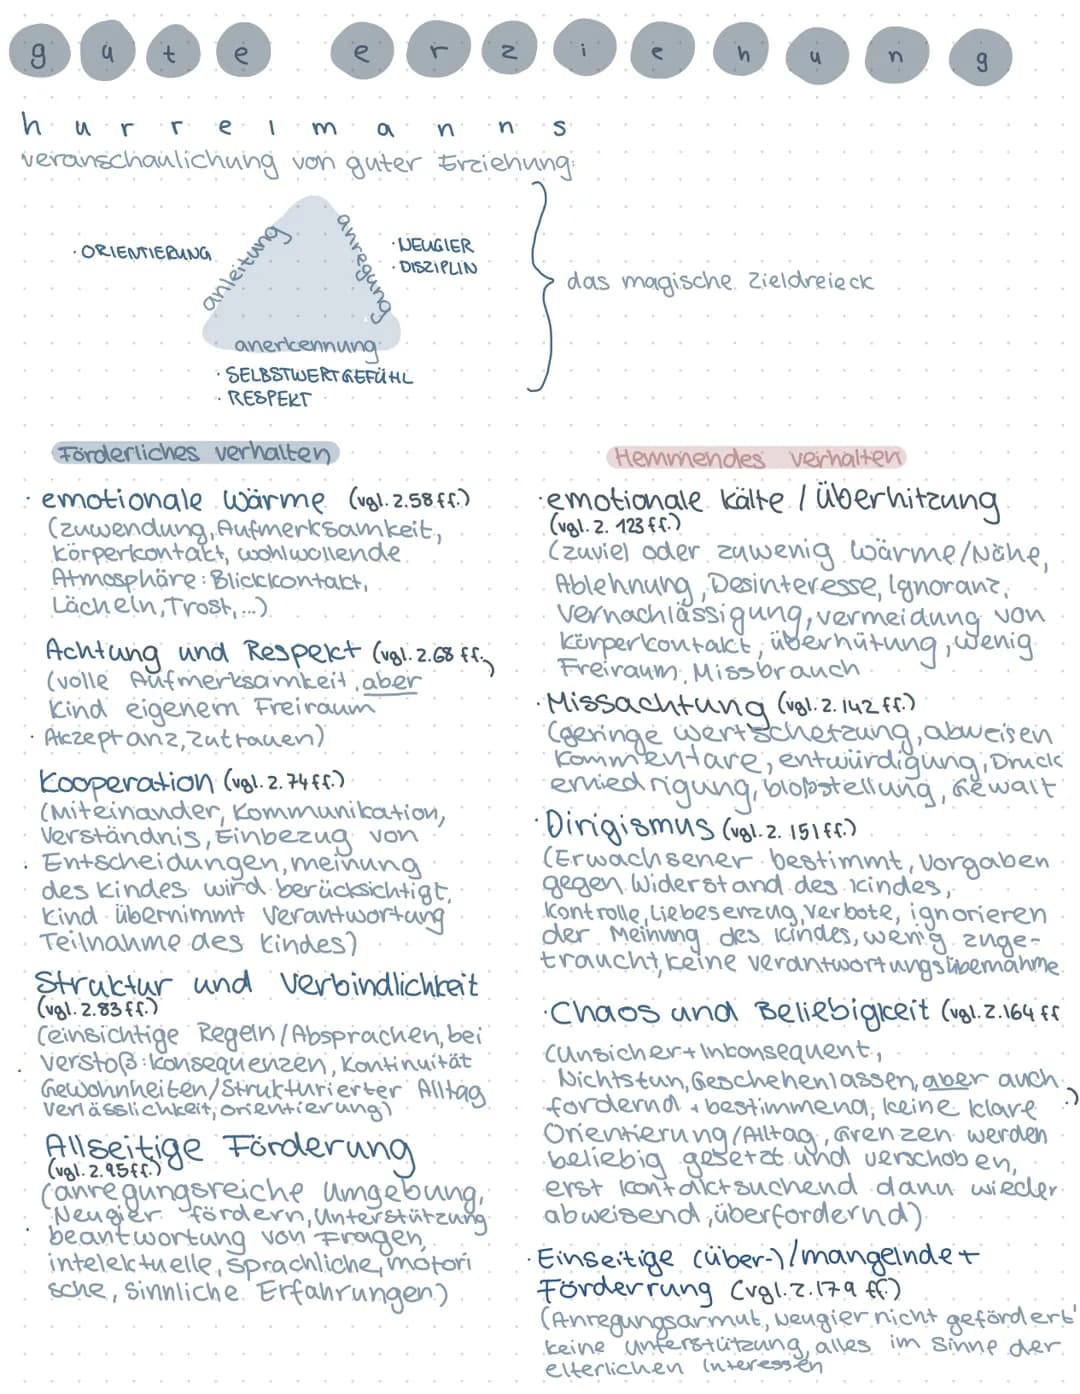 gute erziehung
hurrelmanns
veranschaulichung von guter Erziehung:
· ORIENTIERUNG
anleitung
anregung
· NEUGIER
· DISZIPLIN
das magische Zieldreieck
anerkennung
· SELBSTWERTGEFÜHL
· RESPEKT
Förderliches verhalten
· emotionale Wärme (vgl. Z.58ff.)
(zuwendung, Aufmerksamkeit,
Körperkontakt, wohlwollende
Atmosphäre: Blickkontakt,
Lächeln, Trost, ...)
Achtung und Respekt (vgl. Z.68 ff.)
(volle Aufmerksamkeit, aber
Kind eigenem Freiraum
· Akzeptanz, zutrauen)
Kooperation (vgl. Z.74ff.)
(Miteinander, Kommunikation,
Verständnis, Einbezug von
· Entscheidungen, meinung
des Kindes wird berücksichtigt,
Kind übernimmt Verantwortung
Teilnahme des Kindes)
Struktur und Verbindlichkeit
(vgl. Z.83ff.)
(einsichtige Regeln/Absprachen, bei
· verstoß: konsequenzen, Kontinuität
Gewohnnheiten/Strukturierter Alltag
verlässlichkeit, orientierung)
Allseitige Förderung
(vgl. Z.95ff.)
(anregungsreiche umgebung,
Neugier fördern, Unterstützung
· beantwortung von Fragen,
intelektuelle, sprachliche, motori
sche, Sinnliche Erfahrungen)
Hemmendes verhalten
· emotionale Kälte / Überhitzung
(vgl. Z. 123ff.)
(zuviel oder zuwenig Wärme/Nähe,
Ablehnung, Desinteresse, Ignoranz,
vernachlässigung, vermeidung von
Körperkontakt, überhütung, wenig
Freiraum, Missbrauch
· Missachtung (vgl. Z. 142ff.)
(geringe wertschetzung, abweisen
Kommentare, entwürdigung, Druck
erniedrigung, bloßstellung, Gewalt
· Dirigismus (vgl. Z. 151ff.)
(Erwachsener bestimmt, Vorgaben
gegen Widerstand des Kindes,
Kontrolle, Liebesenzug, Verbote, ignorieren
der Meinung des Kindes, wenig zuge-
traucht, keine verantwortungsübernahme
· Chaos und Beliebigkeit (vgl. Z.164 ff
(unsicher + Inkonsequent,
Nichtstun, Geschehenlassen, aber auch
fordernd + bestimmend, keine klare
Orientierung/Alltag, Grenzen werden
beliebig gesetzt und verschoben,
erst kontaktsuchend dann wieder
abweisend, überfordernd)
· Einseitige (über-)/mangelnde +
Förderrung (vgl. Z.179 ff.)
(Anregungsarmut, Neugier nicht gefördert'
keine unterstützung, alles im Sinne der
elterlichen Interessen